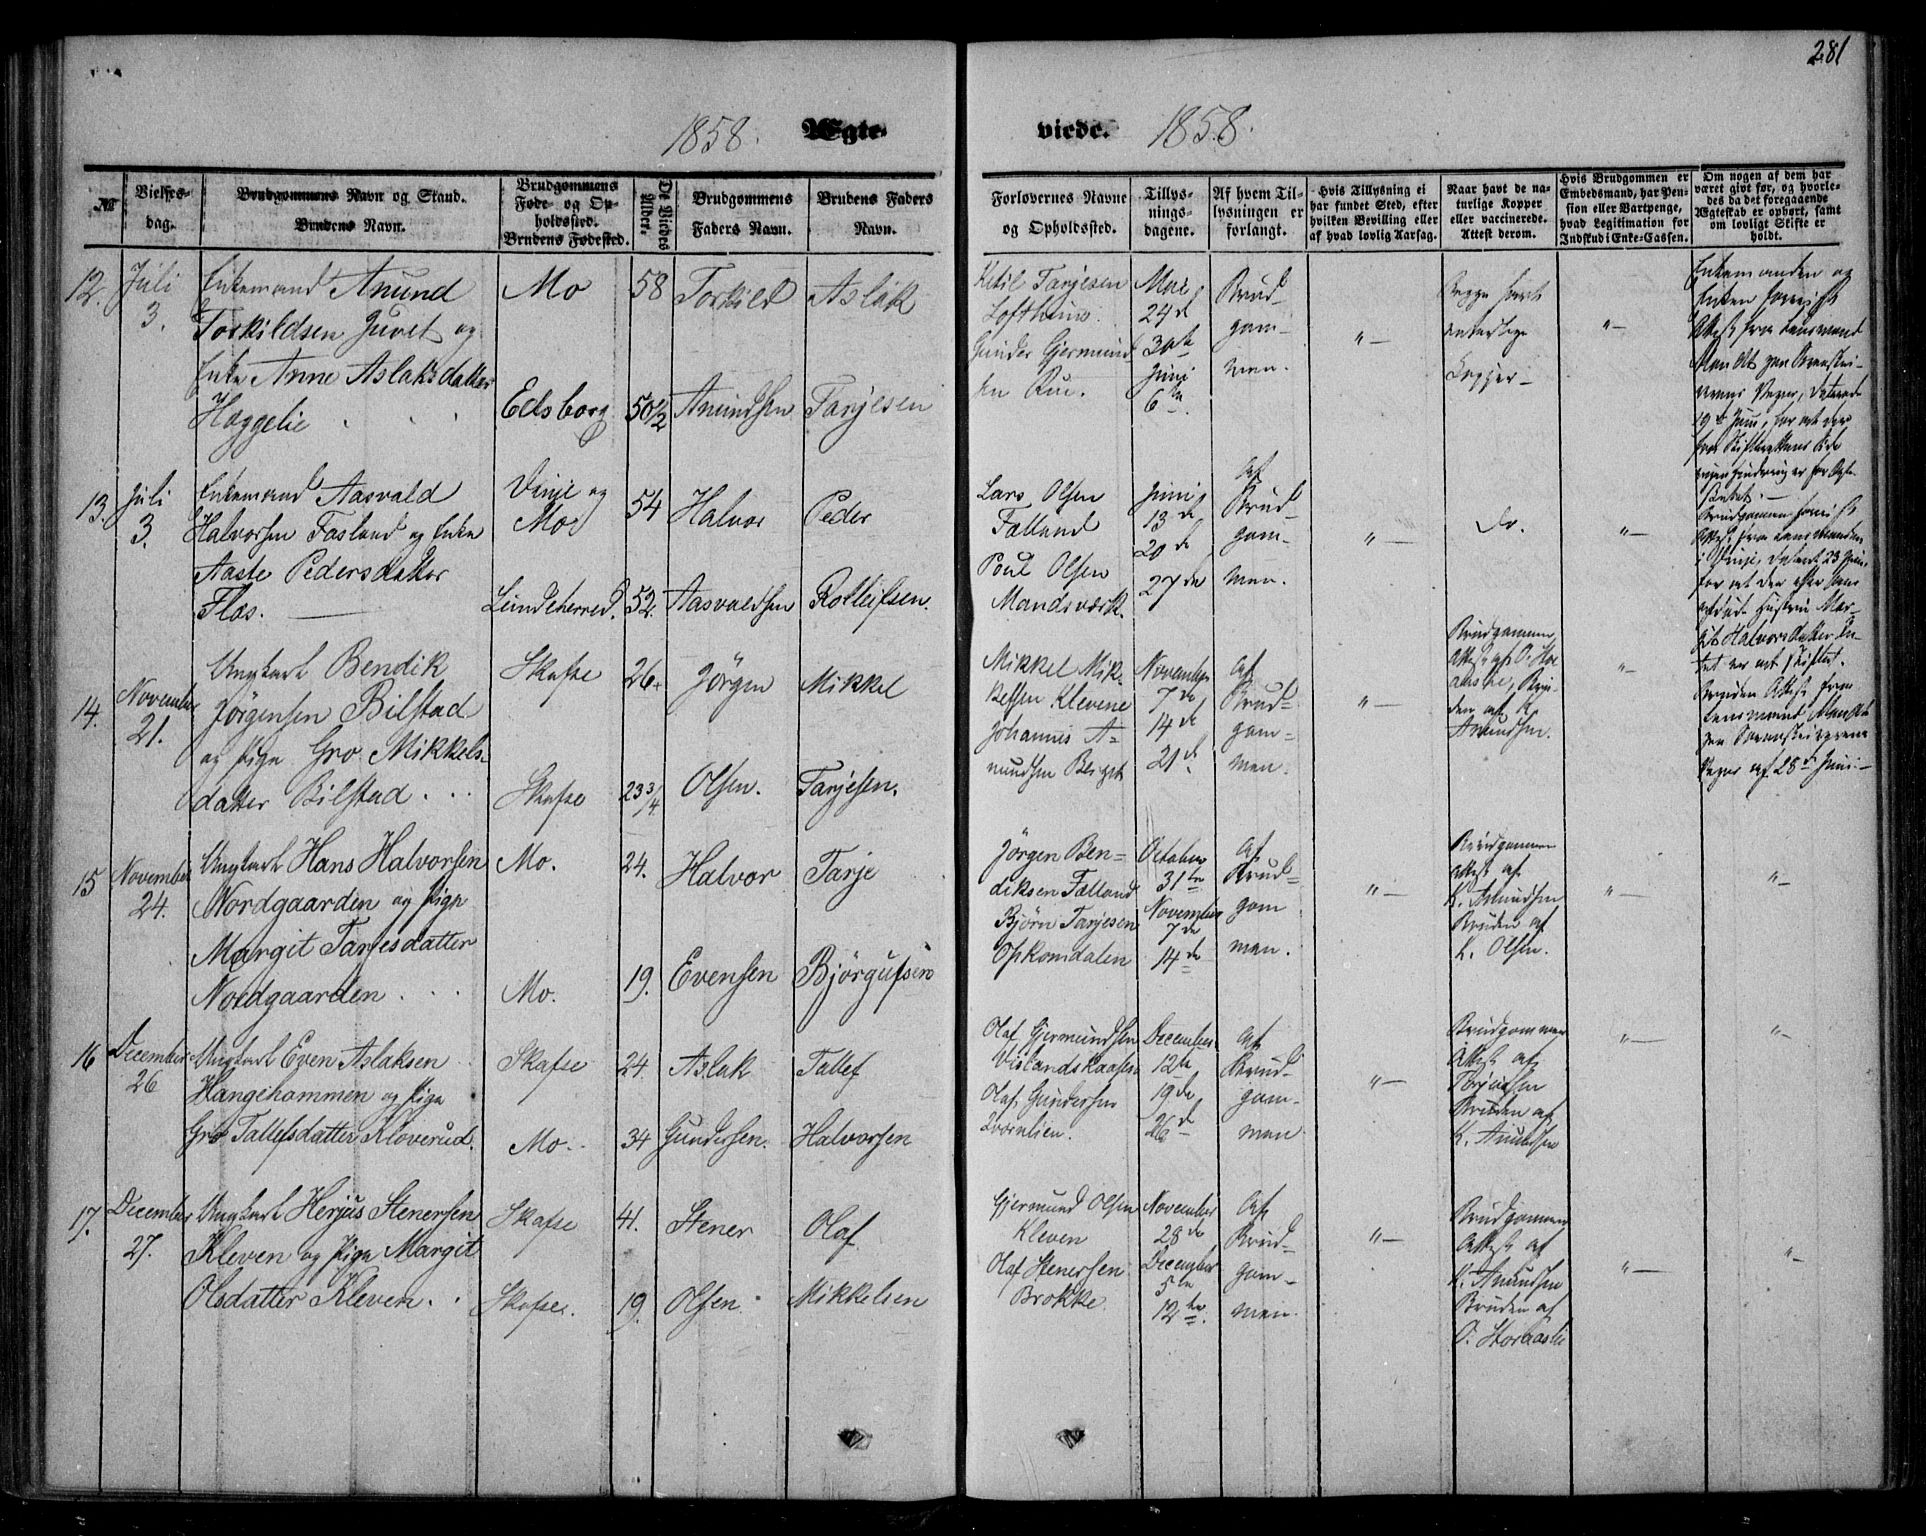 281
1858. Ægte-
viede. 1858.
№
Vielses-
dag.
Brudgommens Navn og Stand.
Brudens Navn.
Brudgommens
Føde- og Op-
holdssted.
Brudens Fødested.
De Viedes
Alder.
Brudgommens
Faders Navn.
Brudens Faders
Navn.
Forlovernes Navne
og Opholdssted.
Tillys-
nings-
dagene.
Af hvem Til-
lysningen er
forlangt.
Hvis Tillysning ei
har fundet Sted, efter
hvilken Bevilling eller
af hvad lovlig Aarsag.
Naar havt de na-
turlige Kopper
eller vaccinerede.
Attest derom.
Hvis Brudgommen er
Embedsmand, har Pen-
sion eller Vartpenge,
hvad Legitimation for
Indskud i Enke-Cassen.
Om nogen af dem har
været givt før, og hvorle-
des da det foregaaende
Ægteskab er ophørt, samt
om lovligt Skifte er
holdt.
12.
Juli
3.
Enkemand Anund
Torkildsen Juvet og
Enke Anne Aslaksdatter
Haggelie
Mo
Edsborg
58
50 1/2
Torkild
Anundsen
Aslak
Tarjesen
Ketil Tarjesen
Lofthuus.
Gunder Gjermund
sen Rue.
Mai
24de
30te
Juni
6te
Brud-
gom-
men.
"—
Begge havt
naturlige
Kopper—
"—
Enkemanden og
Enken forevist
Attest fra Lensmand
19de Juni, for at der
13.
Juli
3.
Enkemand Aasvald
Halvorsen Fasland og Enke
Aaste Pedersdatter
Flæs. —
Vinje og
Mo
Lundeherred.
54
52.
Halvor
Aasvaldsen
Peder
Rolleifsen.
Lars Olsen
Fælland
Poul Olsen
Mandsværk.
Juni
13de
20de
27de
Af
Brud-
gom-
men.
"—
Do.
"—
Brudgommen forevist
Attest fra Lensmanden
i Vinje, dateret 23 Juni,
for at der efter hans
afdøde Hustru Mar-
git Halvorsdatter In-
tet er at skifte.
Bruden Attest fra
Lensmand
af 28de Juni.—
14.
November
21.
Ungkarl Bendik
Jørgensen Bilstad
og Pige Gro Mikkels-
datter Bilstad . . .
Skafse
Skafse
26.
23 3/4
Jørgen
Olsen.
Mikkel
Tarjesen.
Mikkel Mik-
kelsen Klevene
Johannis A-
nundsen
November
7de
14de
21de
Af
Brud-
gom-
men.
"—
Brudgommen
Attest af O. Stor
aaslie, Bru-
den af K.
Anundsen.
"
15
November
24.
Ungkarl Hans Halvorsen
Nordgaarden og Pige
Margit Tarjesdatter
Nordgaarden . . .
Mo.
Mo.
24.
19.
Halvor
Evensen
Tarje
Bjørgufsen
Jørgen Ben-
diksen Fælland
Bjørn Tarjesen
Opkomdalen
October
31te
November
7de
14de
Af
Brud-
gom
men.
"—
Brudgommen
Attest af
K. Anundsen
Bruden af
K. Olsen.
"—
"—
16
December
26
Ungkarl Even Aslaksen
Hangehommen og Pige
Gro Tallefsdatter Kloverud.
Skafse
Mo.
24.
34
Aslak
Gundersen.
Tallef
Halvorsen
Olaf Gjermundsen
Vislandskaasen
Olaf Gundersen
December
12te
19de
26de
Af
Brud-
gom-
men
"—
Brudgommen
Attest af
Bruden af
K. Anundsen
"—
"—
17.
December
27.
Ungkarl Herjus Stenersen
Kleven og Pige Margit
Olsdatter Kleven. .
Skafse
Skafse.
41.
19.
Stener
Olsen.
Olaf
Mikkelsen
Gjermund Olsen
Kleven
Olaf Stenersen
Brokke.
November
28de
December
5te
12te.
Af
Brud-
gom-
men.
"—
Brudgommen
Attest af
K. Anundsen
Bruden af
O. Storaaslie
"—
"—